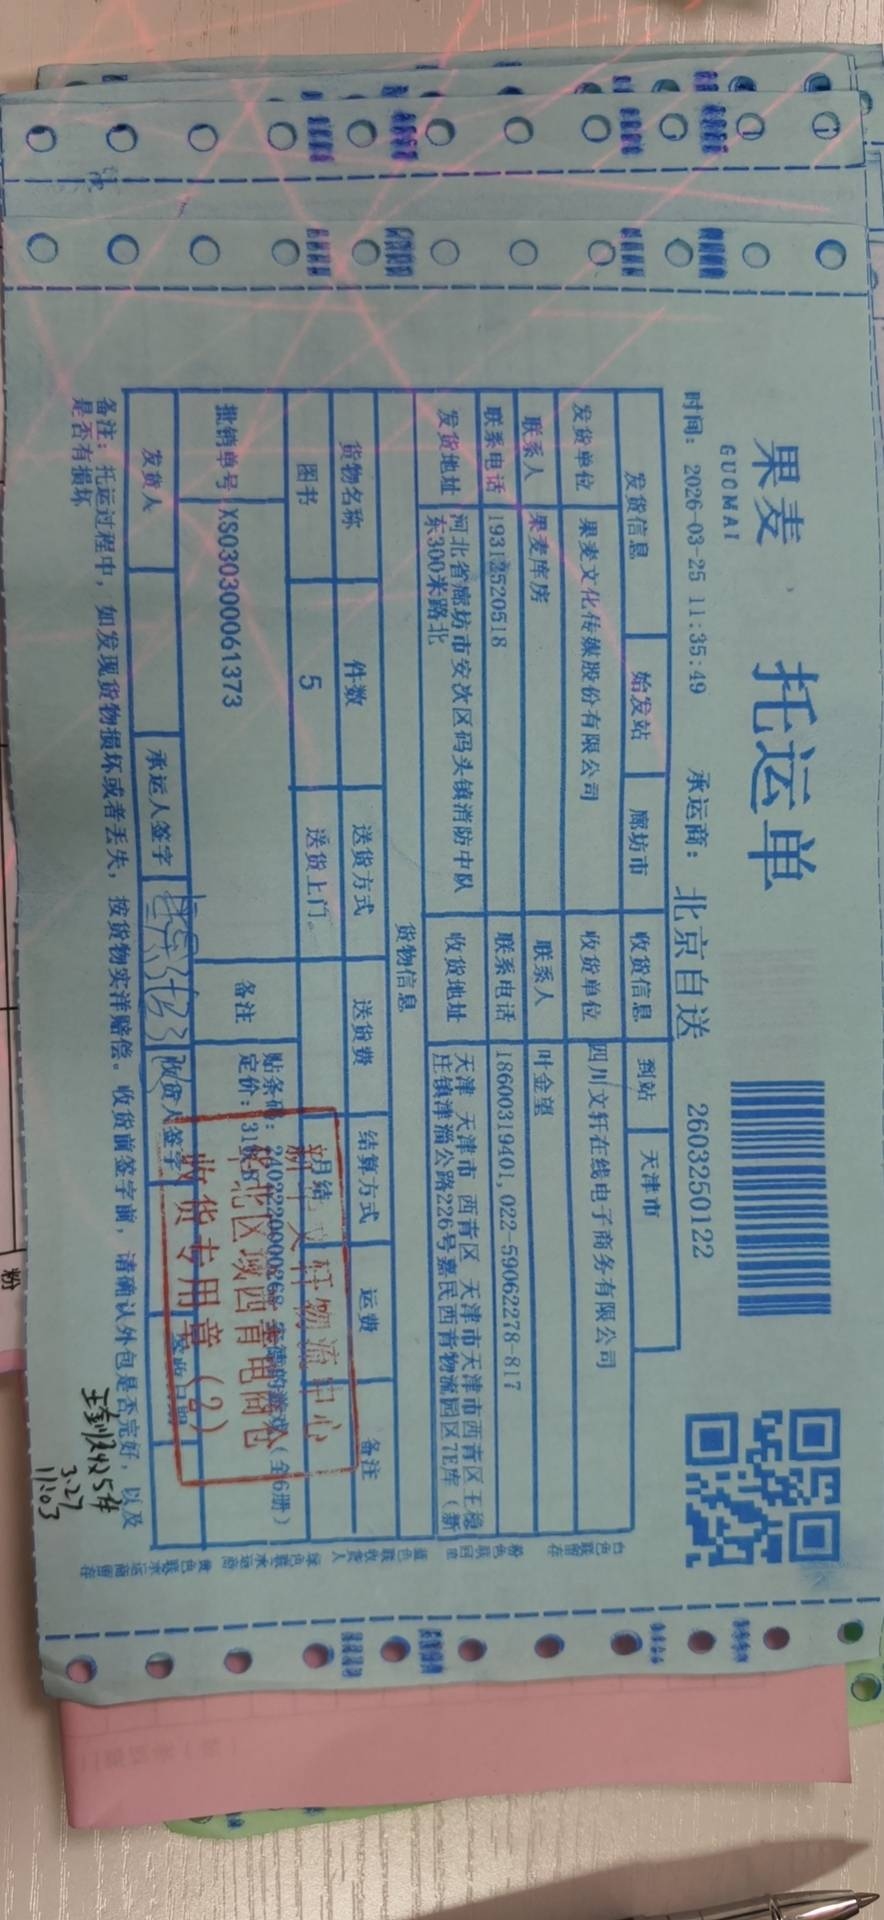 果麦
GUOMAI
托运单
时间: 2026-03-25 11:35:49 承运商: 北京自送 2603250122
发货信息 始发站 廊坊市 收货信息 到站 天津市
发货单位 果麦文化传媒股份有限公司 收货单位 四川文轩在线电子商务有限公司
联系人 果麦库房 联系人 叶金望
联系电话 19312520518 联系电话 18600319401,022-59062278-817
发货地址 河北省廊坊市安次区码头镇消防中队
东300米路北
收货地址 天津 天津市 西青区 天津市天津市西青区王稳
庄镇津淄公路226号嘉民西青物流园区7E库(新
货物信息
货物名称 件数 送货方式 送货费 结算方式 运费 备注
图书 5 送货上门。 月结
批销单号 XS030300061373 备注 贴条码:
(全6册)
定价:
发货人 承运人签字 收货人签字
备注: 托运过程中, 如发现货物损坏或者丢失, 按货物实洋赔偿。收货前签字前, 请确认外包是否完好, 以及
是否有损坏
新华文轩物流中心
华北区域西青电商仓
收货专用章(2)
5件
3.27
11:03
粉